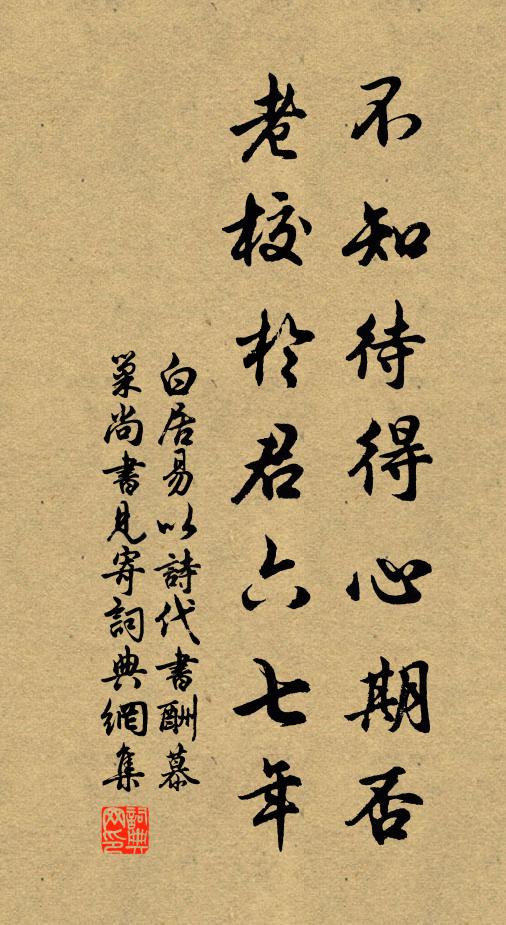 不知待得心期否
老校於君六七年
白居易以詩代書酬慕
巢尚書見寄詞典網集
詞典网印